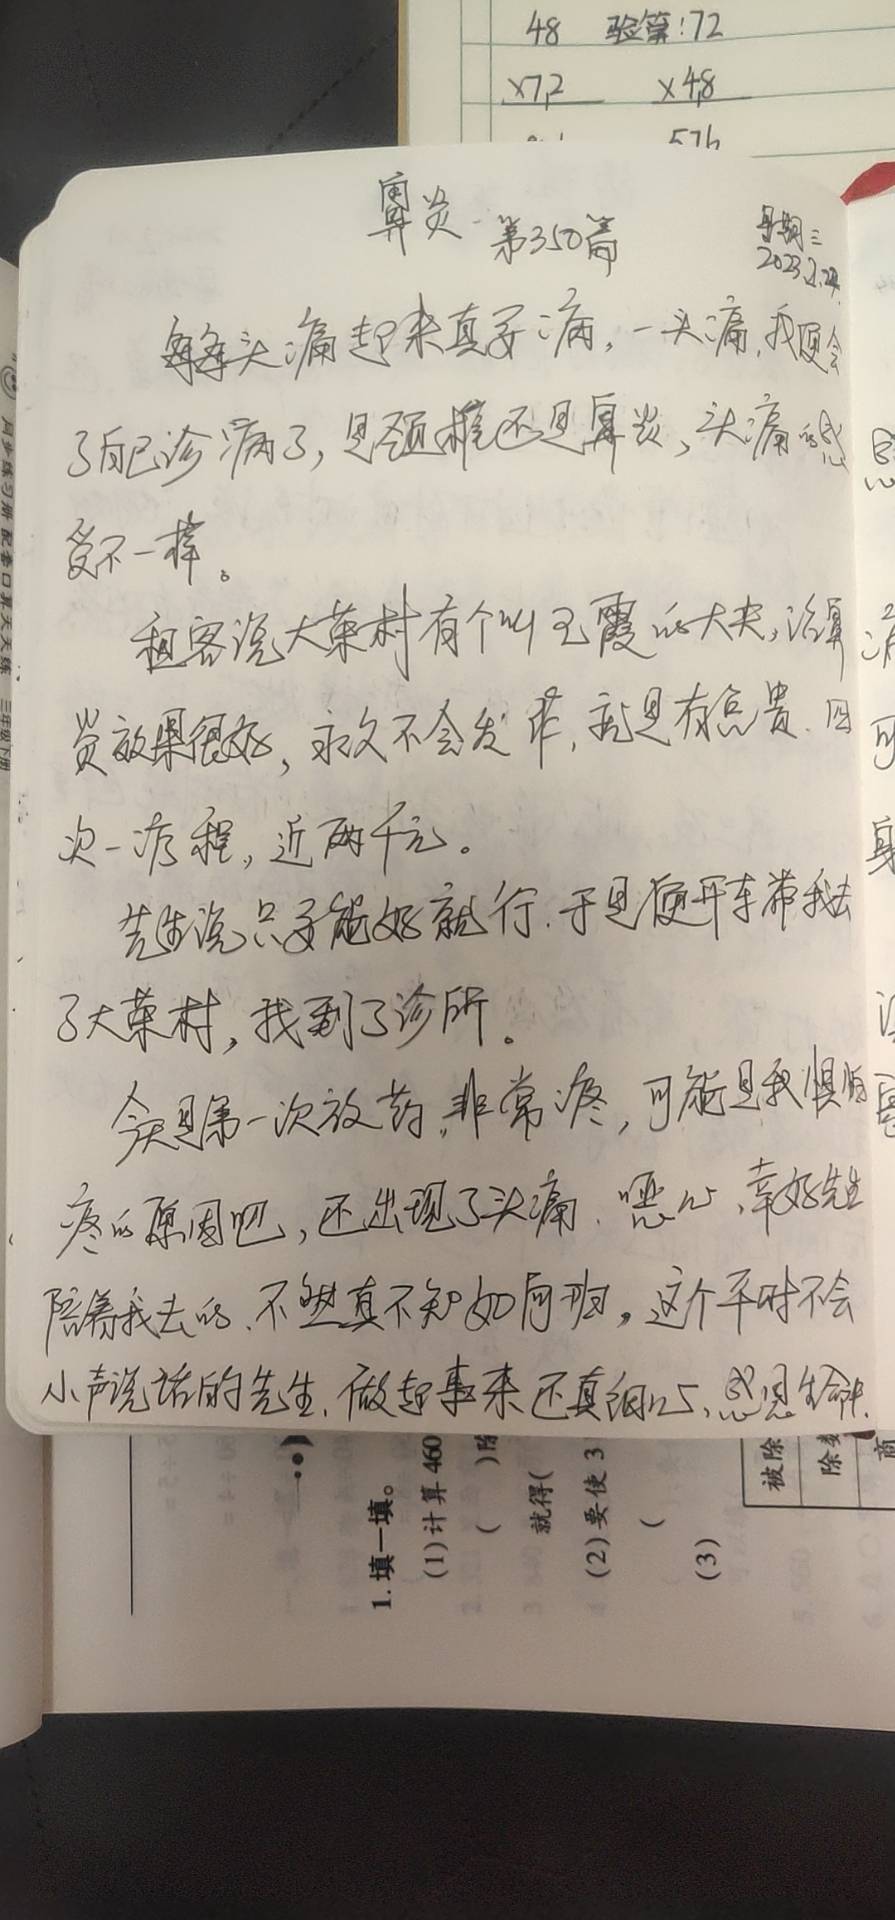 48 验算:72
×7.2 ×4.8
576
鼻炎 第350篇
星期三
2023.2.24.
头痛起来真要病,一头痛,我便会
了自己诊病了,是颈椎还是鼻炎,头痛的感
受不一样。
租客说大菜村有个叫玉霞的大夫,治鼻
炎效果很好,永久不会发作,就是有点贵、四
次一疗程,近两千元。
先生说只要能好就行.于是便开车带我去
了大菜村,找到了诊所。
今天是第一次放药,非常疼,可能是我惧怕
疼的原因吧,还出现了头痛、恶心、幸好先生
陪着我去的、不然真不知如何办,这个平时不会
小声说话的先生、做起事来还真细心、感恩生命中.
同步练习册 配套口算天天练 三年级下册
1.填一填。
(1)计算460
( )除
就得(
(2)要使3
(
(3)
被除
除数
商